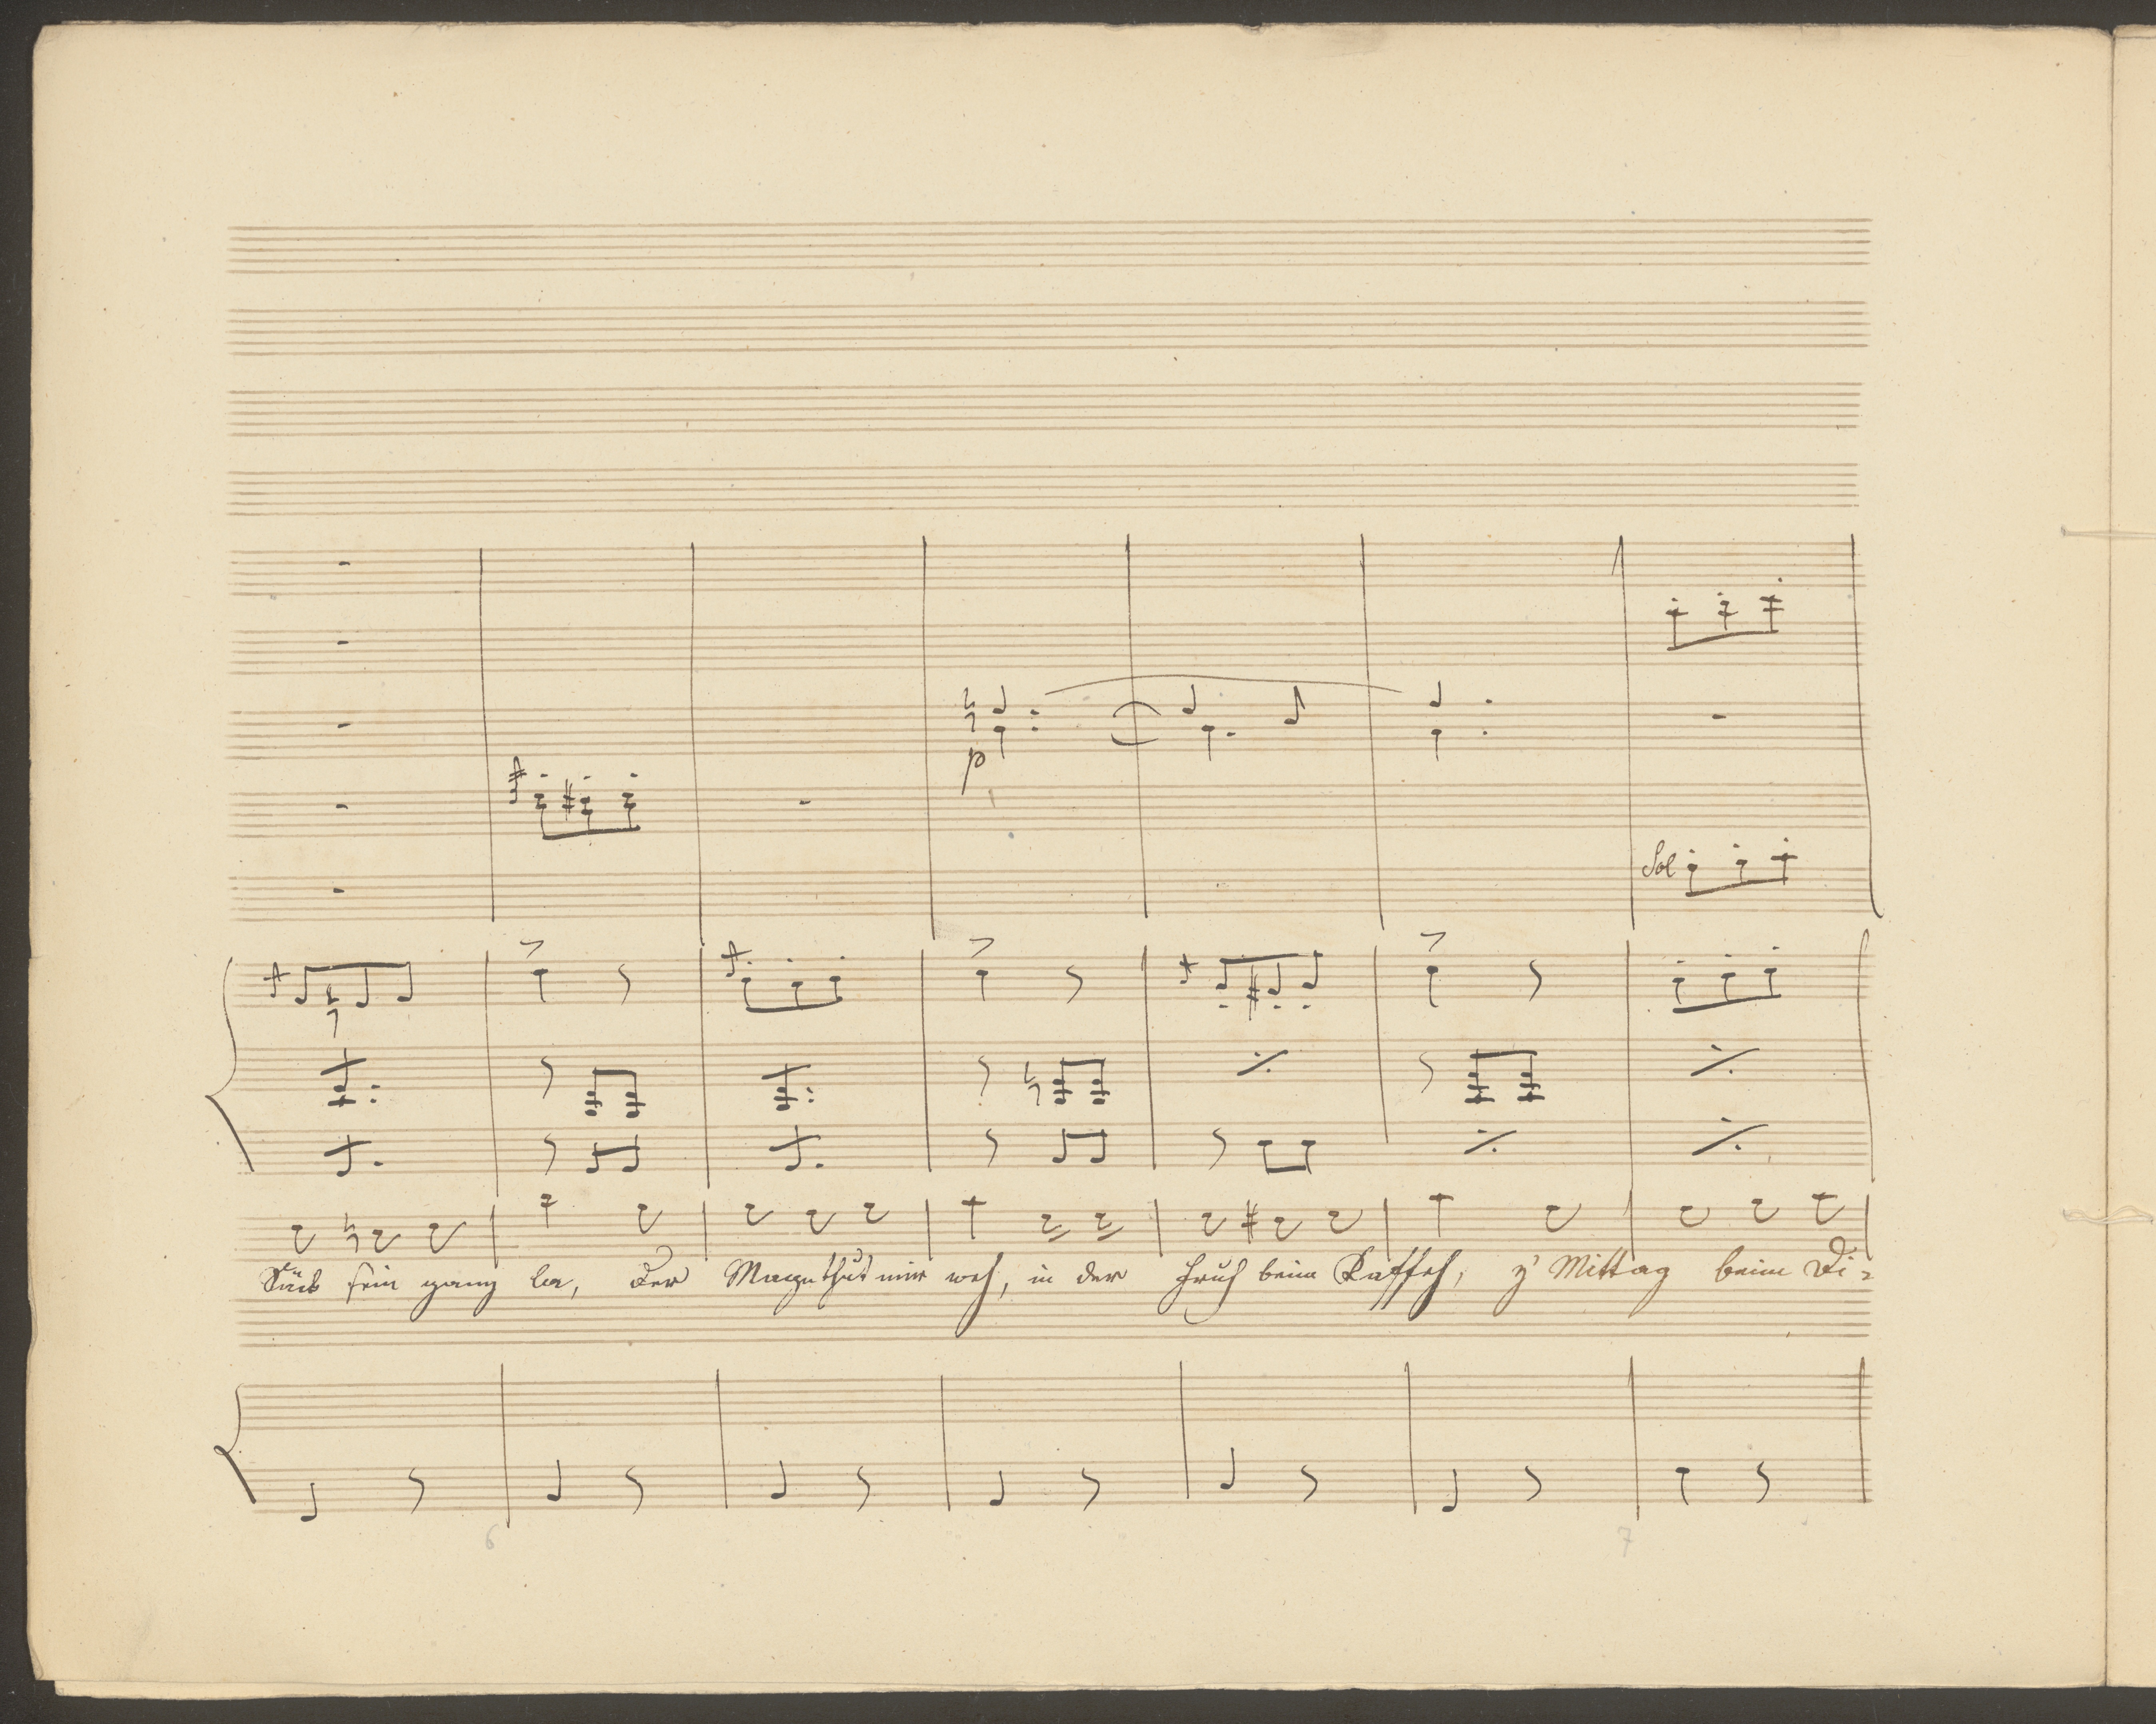 p
Sol
Säck sein ganz la, der Magn thut mir weh, in der Fruh beim Kaffeh, z' Mittag beim Di-
6 7